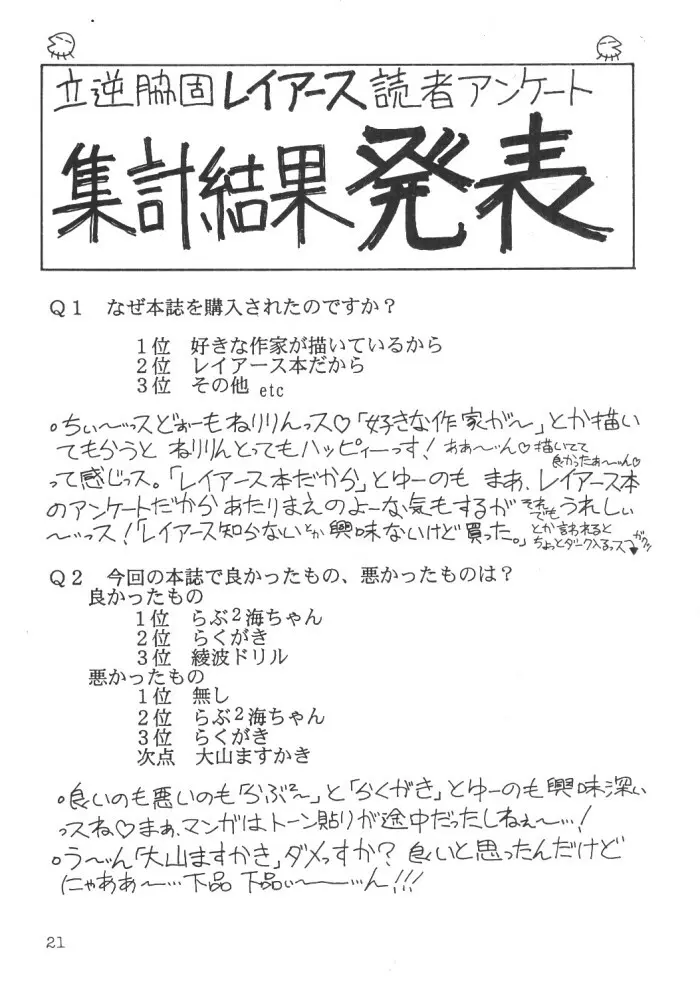 立逆脇固レイアース読者アンケート
集計結果発表
Q1 なぜ本誌を購入されたのですか?
1位 好きな作家が描いているから
2位 レイアース本だから
3位 その他 etc
。ちぃ〜ッスどぉーもねりりんっス♡「好きな作家が〜」とか描い
てもらうと ねりりんとってもハッピィーっす! ああ〜ん♡描いてて
良かったぁ〜ん♡
って感じっス。「レイアース本だから」とゆーのも まあ、レイアース本
のアンケートだから あたりまえのよーな気もするが それでも うれしぃ
〜っス!「レイアース知らないとか興味ないけど買った。」とか言われると
ちょっとダーク入るっス
Q2 今回の本誌で良かったもの、悪かったものは?
良かったもの
1位 らぶ2海ちゃん
2位 らくがき
3位 綾波ドリル
悪かったもの
1位 無し
2位 らぶ2海ちゃん
3位 らくがき
次点 大山ますかき
。良いのも悪いのも「らぶ2〜」と「らくがき」とゆーのも興味深い
っスね♡まあ、マンガはトーン貼りが途中だったしねぇ〜…!
。う〜ん「大山ますかき」ダメっすか? 良いと思ったんだけど
にゃああ〜… 下品 下品ぃ〜…ん!!!
21